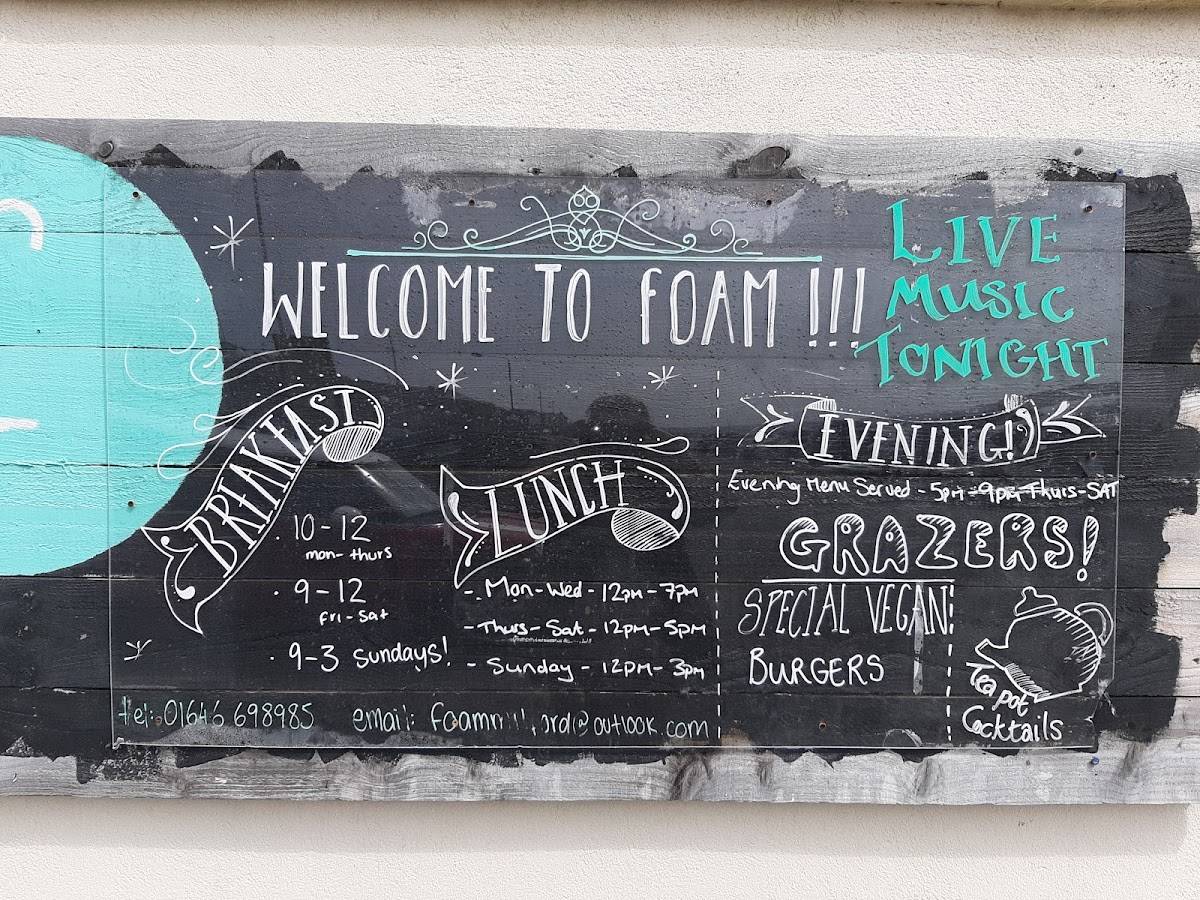 WELCOME TO FOAM !!!
LIVE
MUSIC
TONIGHT
BREAKFAST
10-12
mon-thurs
9-12
fri-sat
9-3 sundays!
LUNCH
- Mon-Wed - 12pm - 7pm
- Thurs-Sat - 12pm - 5pm
- Sunday - 12pm - 3pm
tel: 01646 698985 email: @outlook.com
EVENING!
Evening Menu Served - 5pm - 9pm Thurs-SAT
GRAZERS!
SPECIAL VEGAN
BURGERS
Tea pot
Cocktails